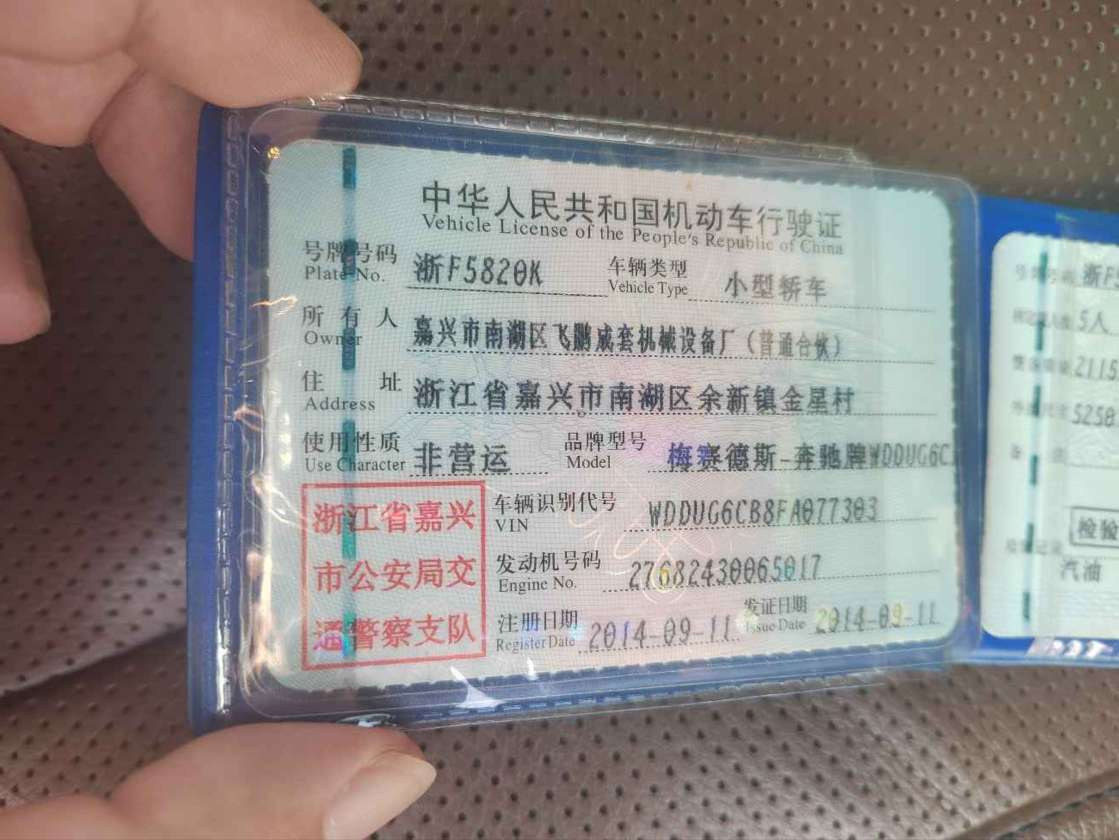 中华人民共和国机动车行驶证
Vehicle License of the People's Republic of China
号牌号码 浙F5820K 车辆类型 小型轿车
Plate No. Vehicle Type
所有人 嘉兴市南湖区飞鹏成套机械设备厂（普通合伙）
Owner
住址 浙江省嘉兴市南湖区余新镇金星村
Address
使用性质 非营运 品牌型号 梅赛德斯-奔驰牌WDDUG6C
Use Character Model
浙江省嘉兴
市公安局交
通警察支队
车辆识别代号 WDDUG6CB8FA077303
VIN
发动机号码 27682430065017
Engine No.
注册日期 2014-09-11 发证日期 2014-09-11
Register Date Issue Date
5人
2115
5250
检验
汽油